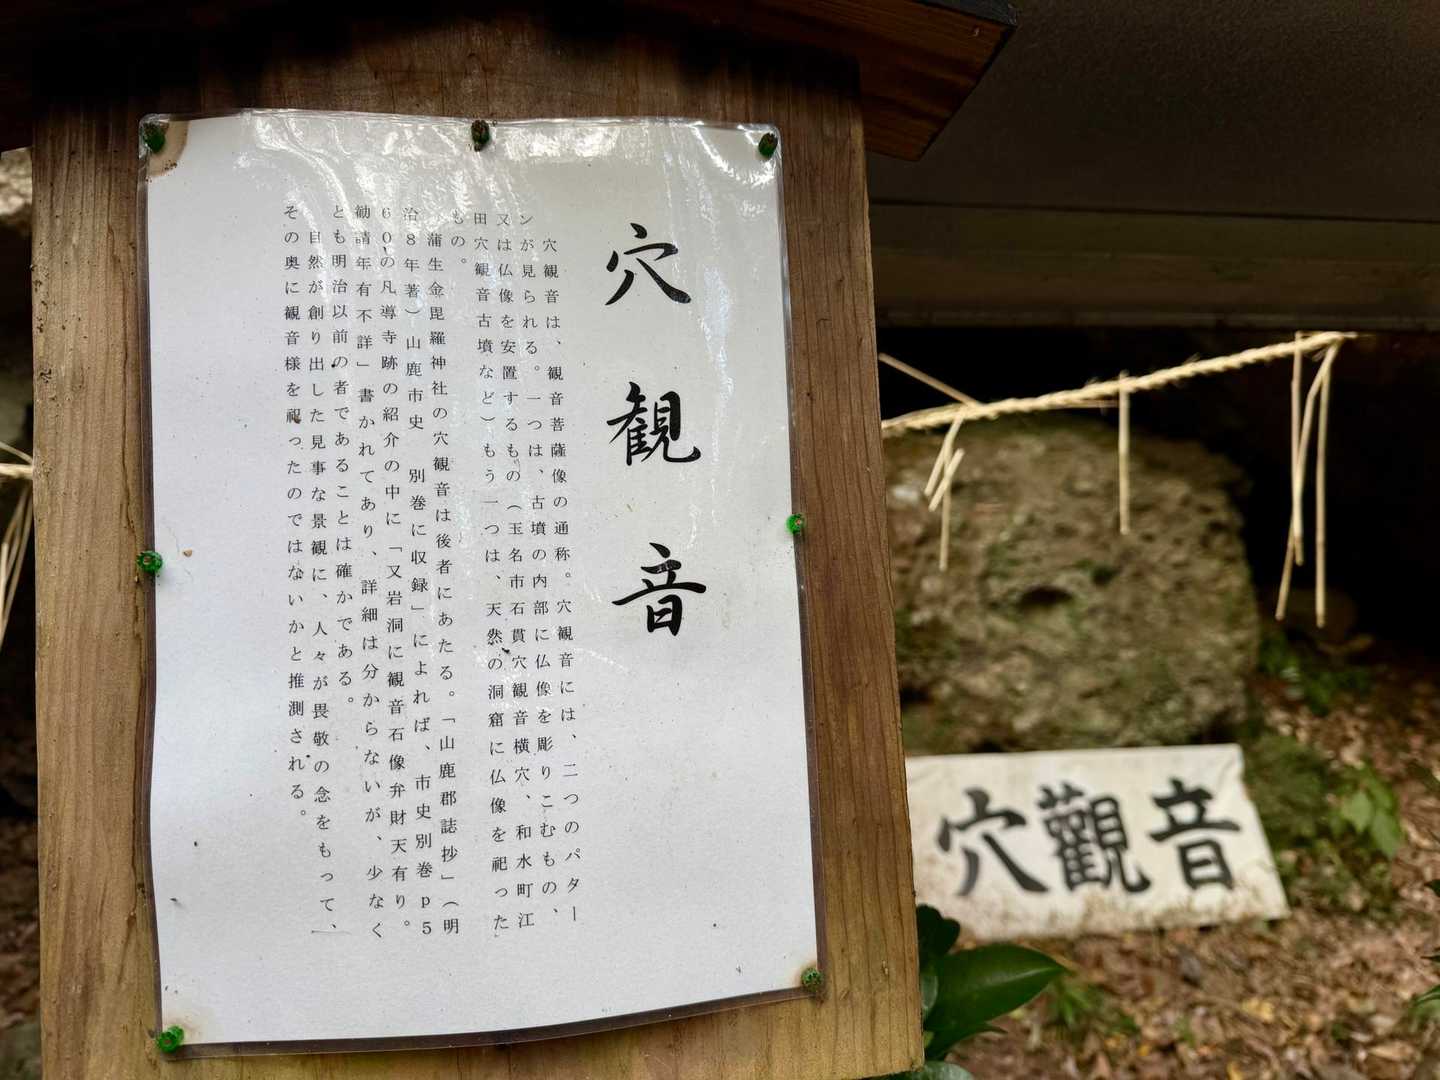 穴観音
穴観音は、観音菩薩像の通称。穴観音には、二つのパター
ンが見られる。一つは、古墳の内部に仏像を彫りこむもの、
又は仏像を安置するもの（玉名市石貫穴観音横穴、和水町江
田穴観音古墳など）もう一つは、天然の洞窟に仏像を祀った
もの。
蒲生金毘羅神社の穴観音は後者にあたる。「山鹿郡誌抄」（明
治８年著）山鹿市史　別巻に収録」によれば、市史別巻ｐ５
６０の凡導寺跡の紹介の中に「又岩洞に観音石像弁財天有り。
勧請年有不詳」書かれてあり、詳細は分からないが、少なく
とも明治以前の者であることは確かである。
自然が創り出した見事な景観に、人々が畏敬の念をもって、
その奥に観音様を祀ったのではないかと推測される。
穴觀音